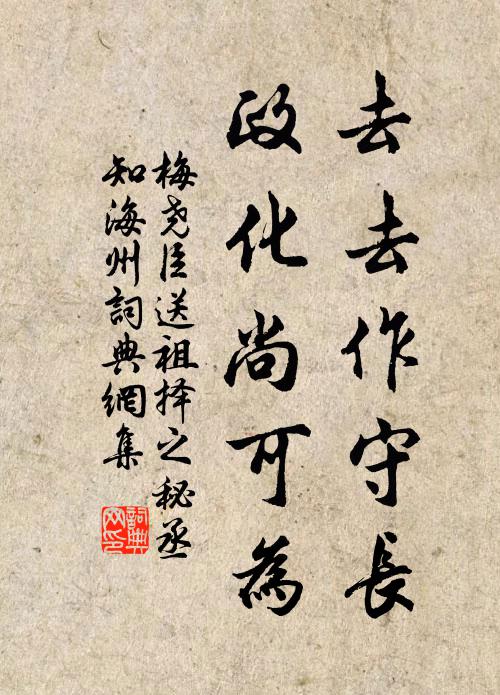 去去作守長
政化尚可為
梅尧臣送祖择之秘丞
知海州詞典網集
詞典网印